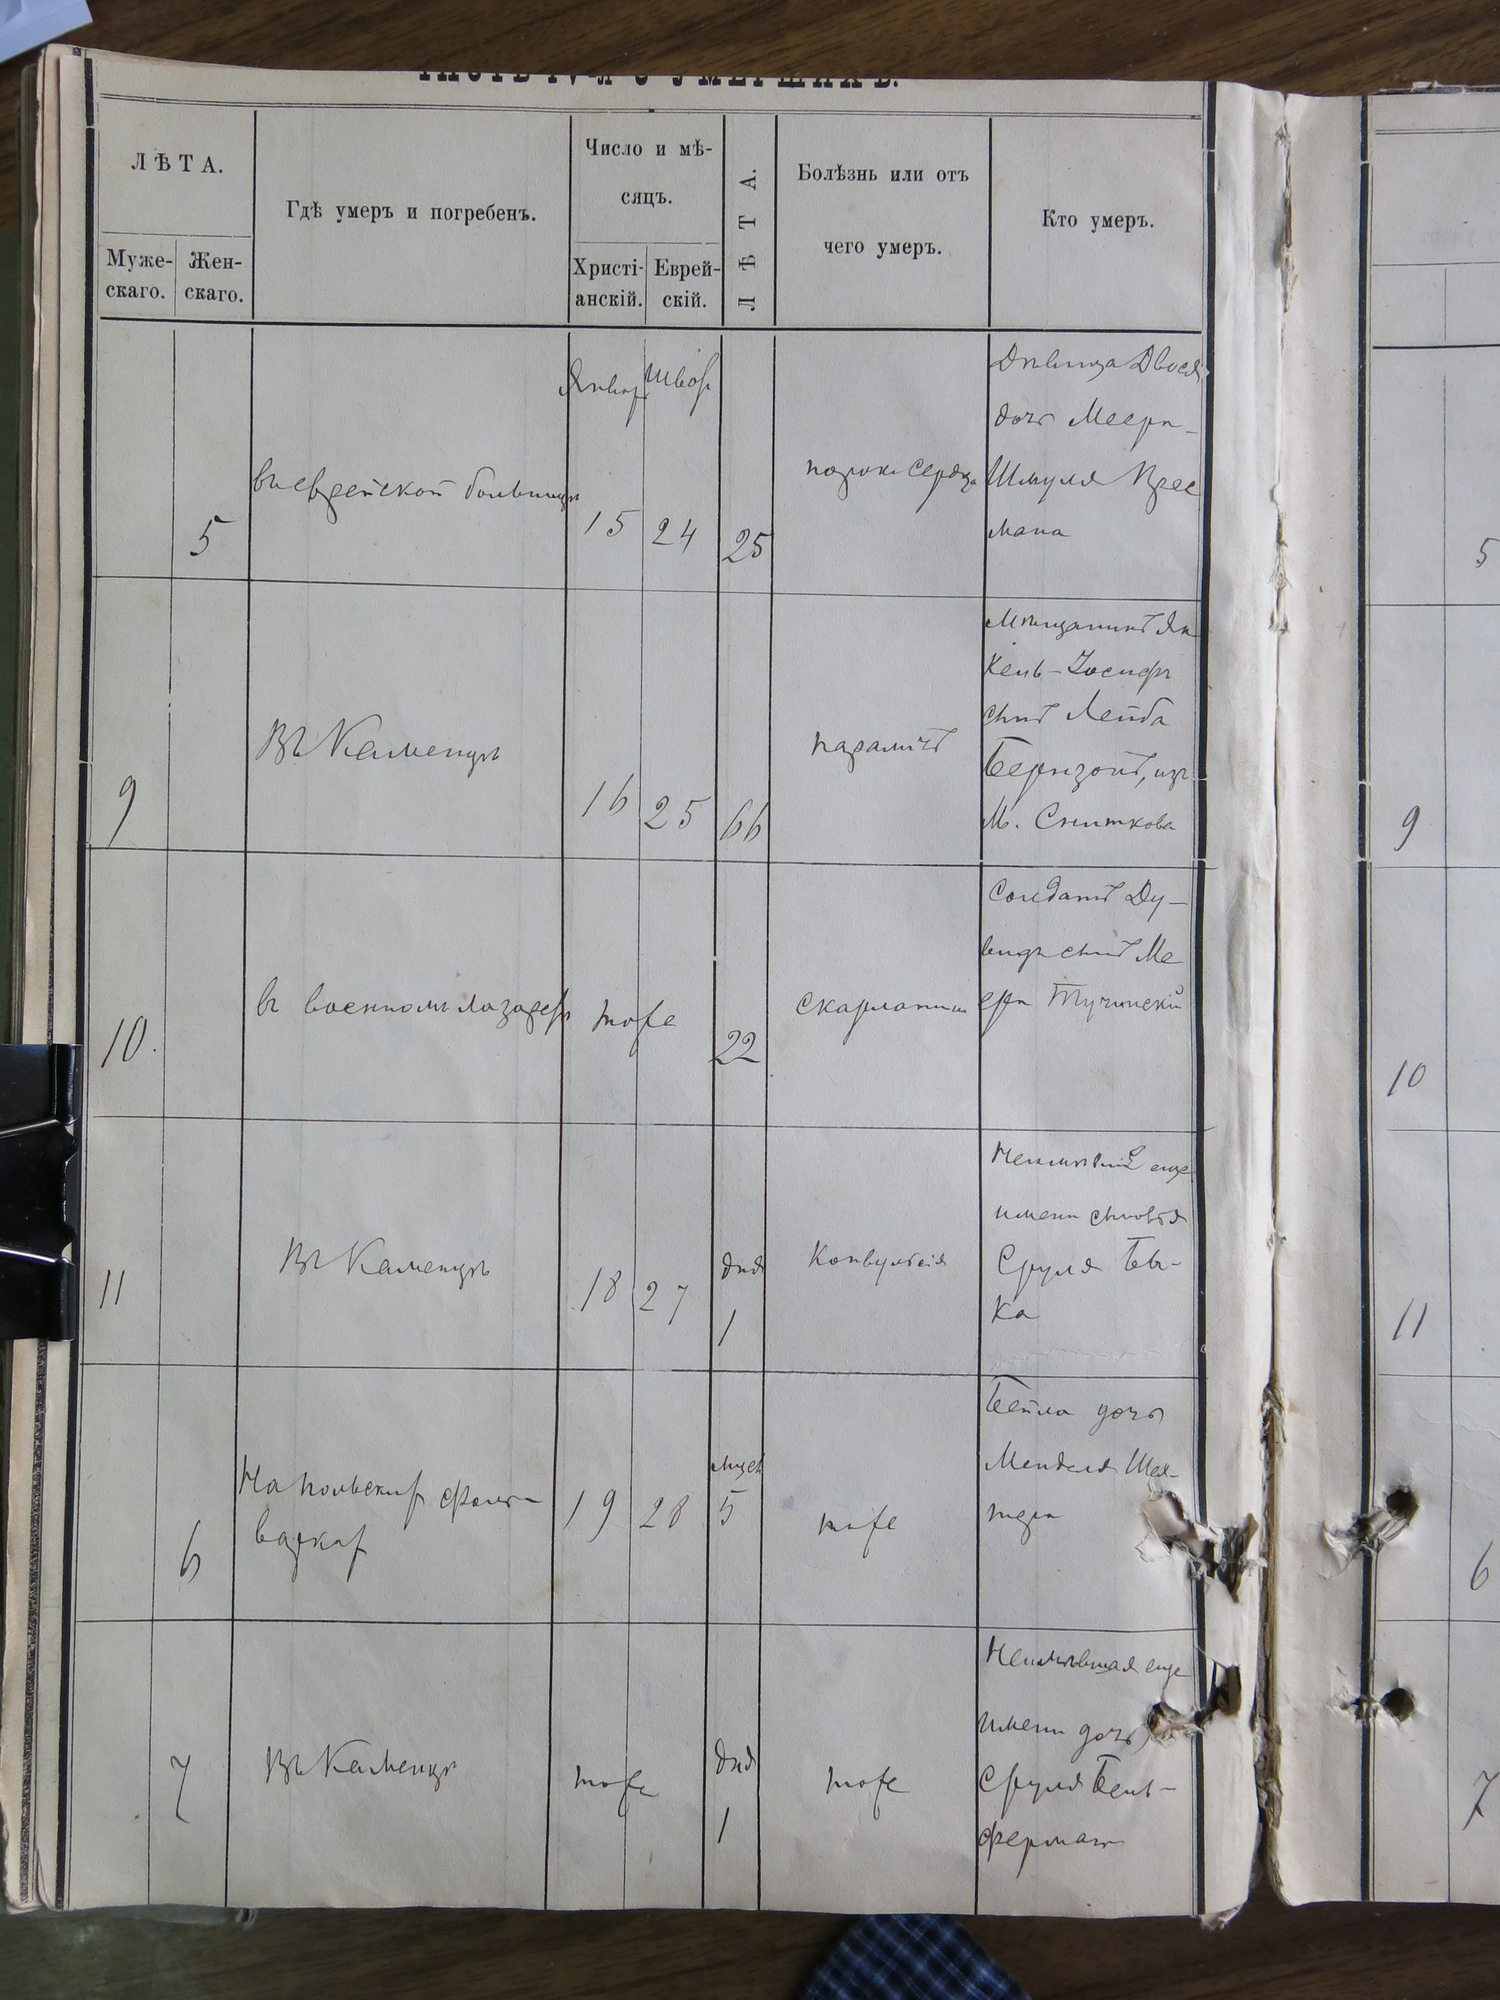 ЧАСТЬ IV-Я О УМЕРШИХЪ.
ЛѢТА.
Муже-
скаго.
Жен-
скаго.
Гдѣ умеръ и погребенъ.
Число и мѣ-
сяцъ.
Христі-
анскій.
Еврей-
скій.
ЛѢТА.
Болѣзнь или отъ
чего умеръ.
Кто умеръ.
5
въ еврейской больницѣ
Январ
Шват
15
24
25
порокъ сердца
Дѣвица Двося
дочь Меера-
Шмуля
мана
9
Въ Каменцѣ
16
25
66
параличъ
Мѣщанинъ Ян
кель-Іосифъ
сынъ Лейба
Беринзонъ, изъ
М. Сниткова
10.
въ военномъ лазаретѣ
тоже
22
скарлатина
Солдатъ Ду-
видъ сынъ Ме
ера Тучинскій
11
Въ Каменцѣ
18
27
дня
1
Конвульсія
Неимѣвшій еще
имени сыновья
Сруля Бы-
ка
6
На польскихъ фоль-
варкахъ
19
28
мѣсец
5
тоже
Бейла дочь
Менделя Шех-
тера
7
Въ Каменцѣ
тоже
дня
1
тоже
Неимѣвшая еще
имени дочь
Сруля Бель-
фермана
5
9
10
11
6
7